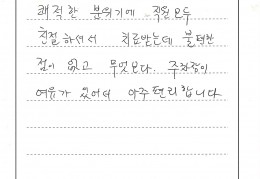 쾌적한 분위기에 직원모두
친절하셔서 치료받는데 불편한
점이 없고 무엇보다. 주차장이
여유가 있어서 아주 편리합니다